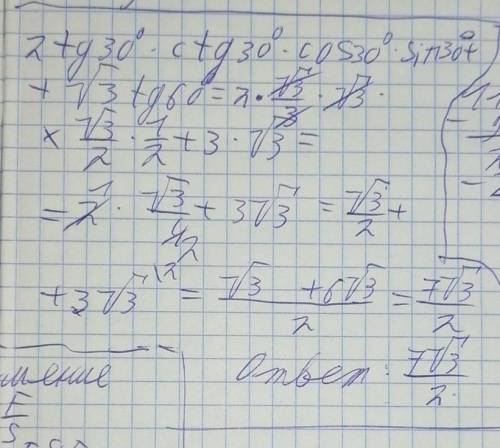 2tg30°·ctg30°·cos30°·sin30°+
+√3 tg60°=2·√3/3·√3·
×√3/2·1/2+3·√3=
=2·√3/4+3√3=√3/2+
+3√3=(√3+6√3)/2=7√3/2
Ответ: 7√3/2
мление
F
S